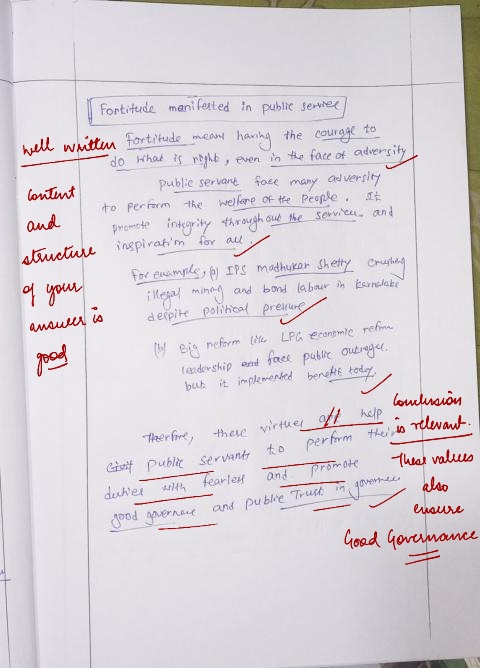 Fortitude manifested in public service
well written
Fortitude means having the courage to
do what is right, even in the face of adversity
Public servant face many adversity
to perform the welfare of the People. It
promote integrity throughout the services and
inspiration for all.
Content
and
structure
of your
answer is
good
For example, (a) IPS Madhukar Shetty crushing
illegal mining and bond labour in Karnataka
despite political pressure
(b) Big reform like LPG economic reform
leadership and face public outrages.
but it implemented benefits today.
Therefore, these virtues all help
Civil Public servants to perform their
duties with fearless and promote
good governance and public Trust in governance
Conclusion
is relevant.
These values
also
ensure
Good Governance